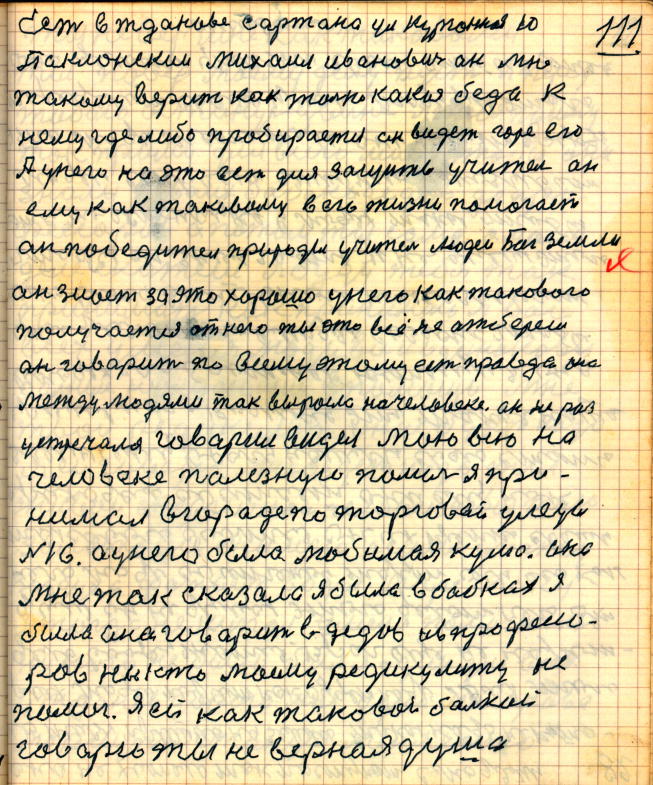 111
Ест в жданове сартана ул Купонная 10
Паклонскии михаил иванович ан мне
такому верит как толко какая беда к
нему где либо пробирается он видет горе его
А унего на это ест для защиты учител ан
ему как таковому в его жизни помогает
ан победител природы учител людеи Бог земли
ан знает за это хорошо унего как такового
получается от него ты это всё не атбереш
ан говарит по всему этому ест правда она
между людями так выросла на человеке. ан не раз
устречаля говарил видел мою всю на
человеке палезную помощ я при-
нимал в горадепо торговай улецы
N 16. а унего была любимая кума. она
мне так сказала я была в бабках я
была она говарит в дедов ивпрофессо-
ров нихто моему редикулиту не
помог. Я еи как таковои балнои
говарю ты не верная душа